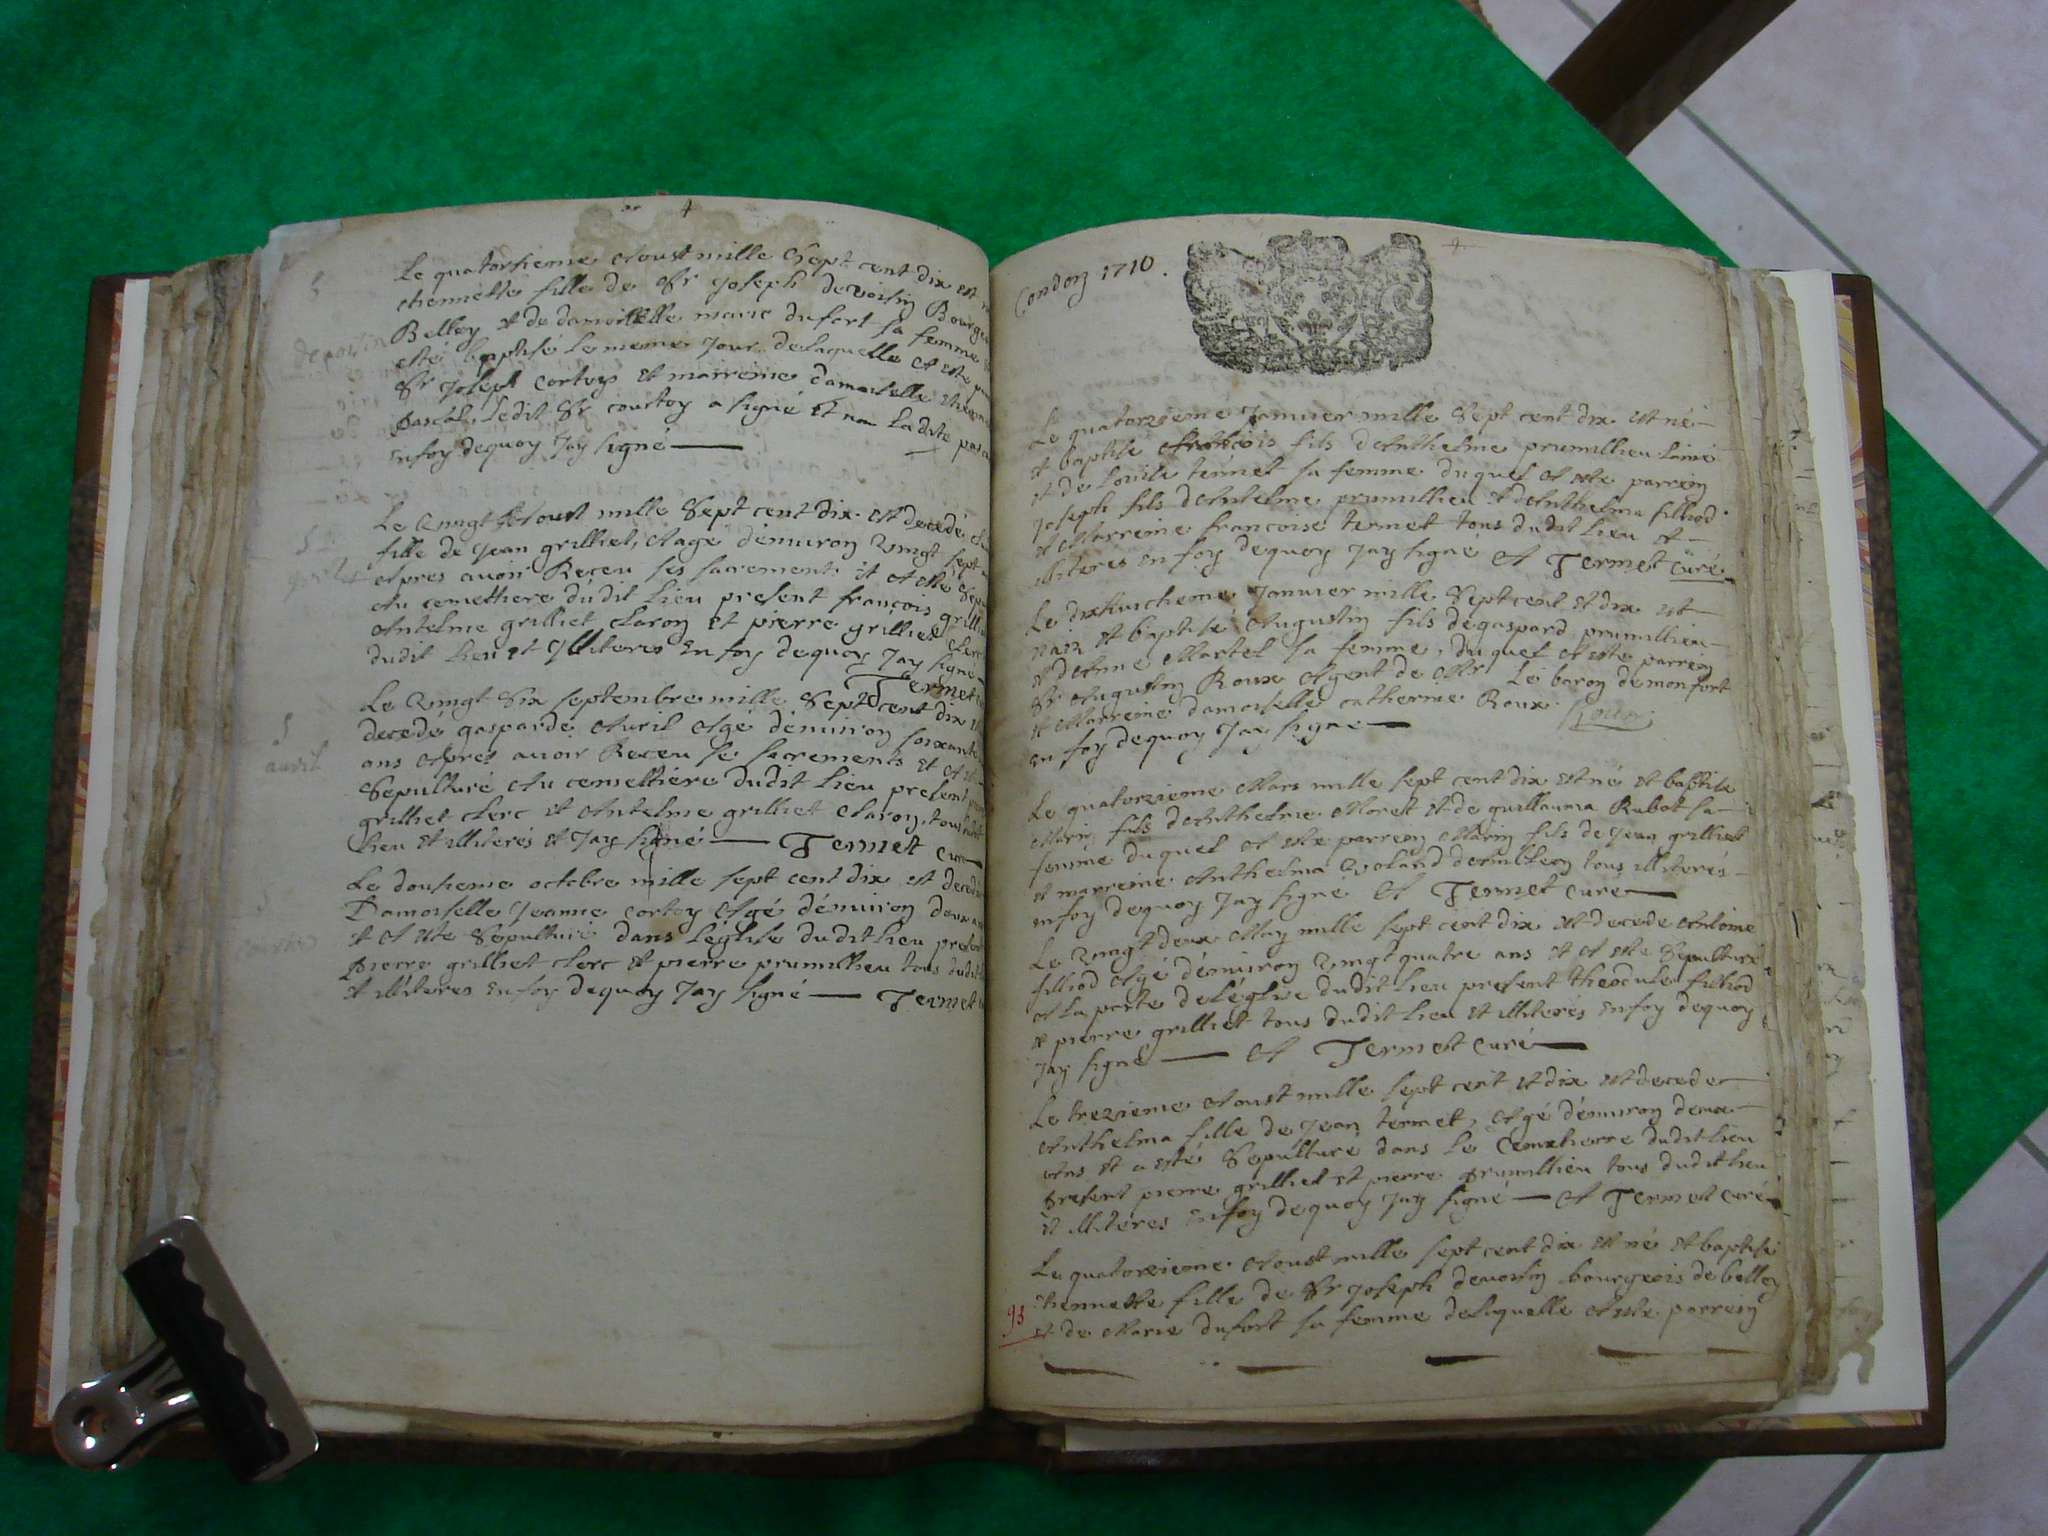 Le quatorsieme Aoust mille Sept cent dix est
thennette fille de Sr Joseph devoisin Bourge
Belley et de damoiselle marie dufort sa femme
esté baptisé le meme Jour delaquelle A este
Sr Joseph Cortoys et marreine damoiselle
pascal, ledit Sr courtoy a signé et non Ladite pasca
enfoy dequoy Jay signé
devoisin
Le vingt Aoust mille Sept cent dix est decede
fille de Jean grilliet, Aagé denuiron vingt sept
Apres auoir Receu ses sacrements et A esté Sepu
Au cemethere dudit Lieu present françois grillie
Antelme grilliet Claron et pierre grilliet Clerc
dudit Lieu et Illiteres enfoy dequoy Jay signé
Termet
Le vingt Six septembre mille Sept cent dix
decedé gasparde Auril Agé denuiron soixante
ans Apres auoir Receu se sacrements et A
Sepulturé Au cemettiere dudit Lieu present
grilliet clerc et Antelme grilliet Claron, tous
Lieu et illiterés et Jay signé Termet Cu
auril
Le dousieme octobre mille sept cent dix est decedé
Damoiselle Jeanne Cortoy Agé denuiron deux
et A este Sepulturé dans Léglise dudit Lieu present
pierre grilliet clerc et pierre prumillieu tous dudit
et illiteres enfoy dequoy Jay signé Termet
Condon 1710.
Le quatorzieme Januier mille Sept cent dix est né
et baptisé francois fils dAnthelme prumillieu Lainé
et de Louise termet sa femme duquel A este parrein
Joseph fils dAntelme prumillieu et dAnthelma filliod
et Marreine francoise termet tous dudit Lieu et
illiterés en foy dequoy Jay signé A Termet curé
Le dixhuictieme Januier mille Sept cent et dix est
naiz et baptisé Augustin fils degaspard prumillieu
et dAnne Martel sa femme, duquel A este parrein
Sr Augustin Roux Agent de Mr Le baron de monfort
et Marreine damoiselle catherine Roux Roux
en foy dequoy Jay signé
Le quatorzieme Mars mille sept cent dix est né et baptisé
Marin fils dAnthelme Moret et de guillauma Rubat sa
femme duquel A este parrein Marin fils de Jean grilliet
et marreine Anthelma tous illiterés
enfoy dequoy Jay signé A Termet curé
Le vingt deux May mille sept cent dix est decedé Antoine
filliod Agé denuiron vingt quatre ans et A este Sepulturé
A la porte deLéglise dudit Lieu present theodule filliod
et pierre grilliet tous dudit Lieu et illiterés enfoy dequoy
Jay signé A Termet curé
Le trezieme Aoust mille sept cent et dix est decedé
Anthelma fille de Jean termet, Agé denuiron deux
Ans et a esté Sepulturé dans le Cemetierre dudit Lieu
present pierre grilliet et pierre prumillieu tous dudit Lieu
et illiteres enfoy dequoy Jay signé A Termet curé
Le quatorzieme Aoust mille sept cent dix est né et baptisé
thennette fille de Sr Joseph devoisin bourgeois de belley
et de Marie dufort sa femme delaquelle A este parrein
93